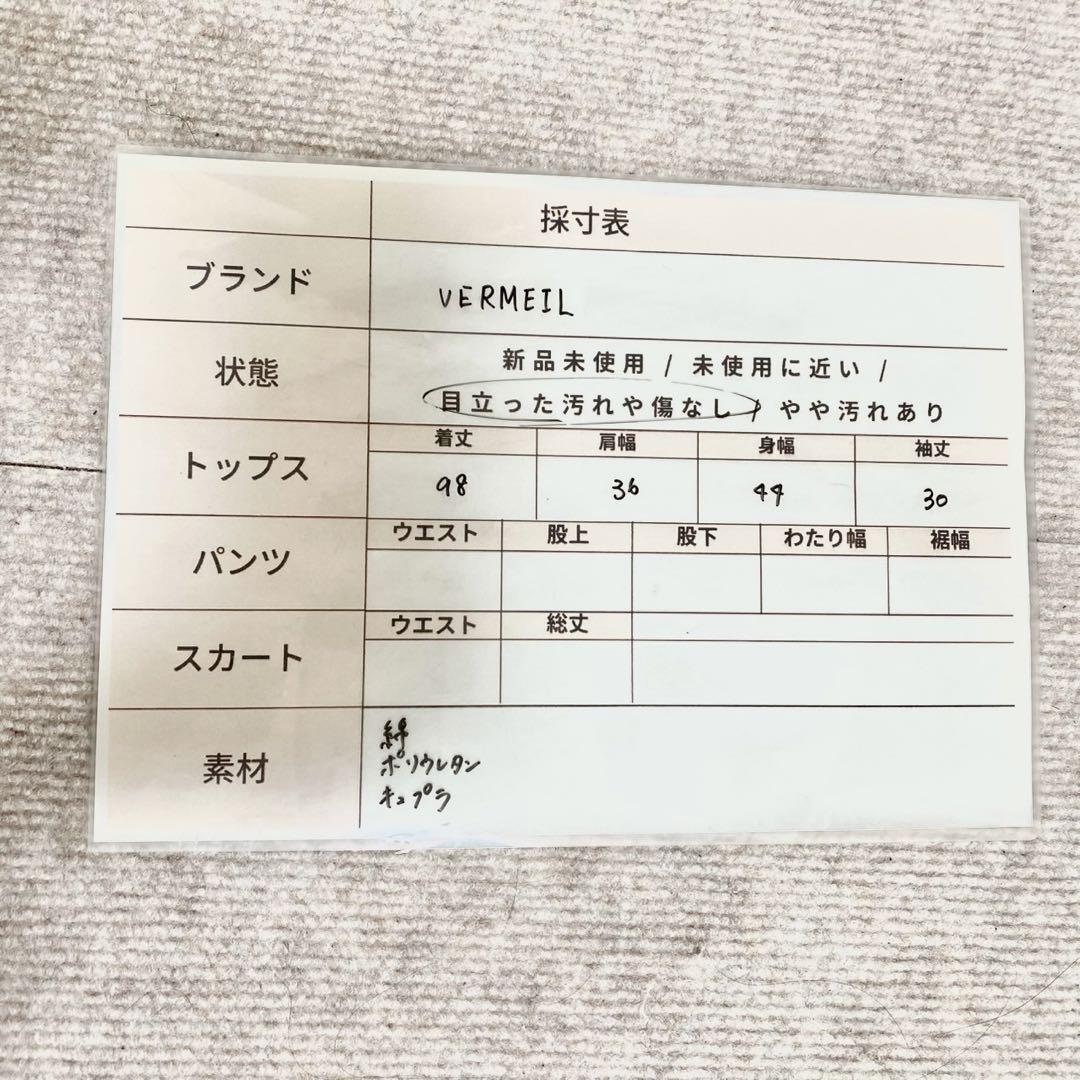 採寸表
ブランド
VERMEIL
状態
新品未使用 / 未使用に近い /
目立った汚れや傷なし / やや汚れあり
トップス
着丈 肩幅 身幅 袖丈
98 36 44 30
パンツ
ウエスト 股上 股下 わたり幅 裾幅
スカート
ウエスト 総丈
素材
綿
ポリウレタン
キュプラ